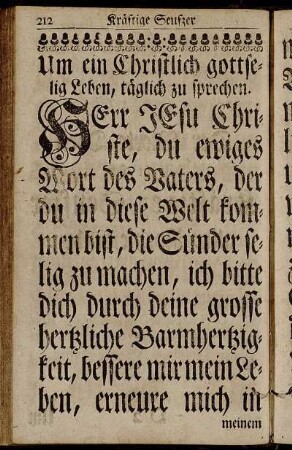 212 Kräftige Seufzer
Um ein Christlich gottse-
lig Leben, täglich zu sprechen.
HErr JEsu Chri-
ste, du ewiges
Wort des Vaters, der
du in diese Welt kom-
men bist, die Sünder se-
lig zu machen, ich bitte
dich durch deine grosse
hertzliche Barmhertzig-
keit, bessere mir mein Le-
ben, erneure mich in
meinem